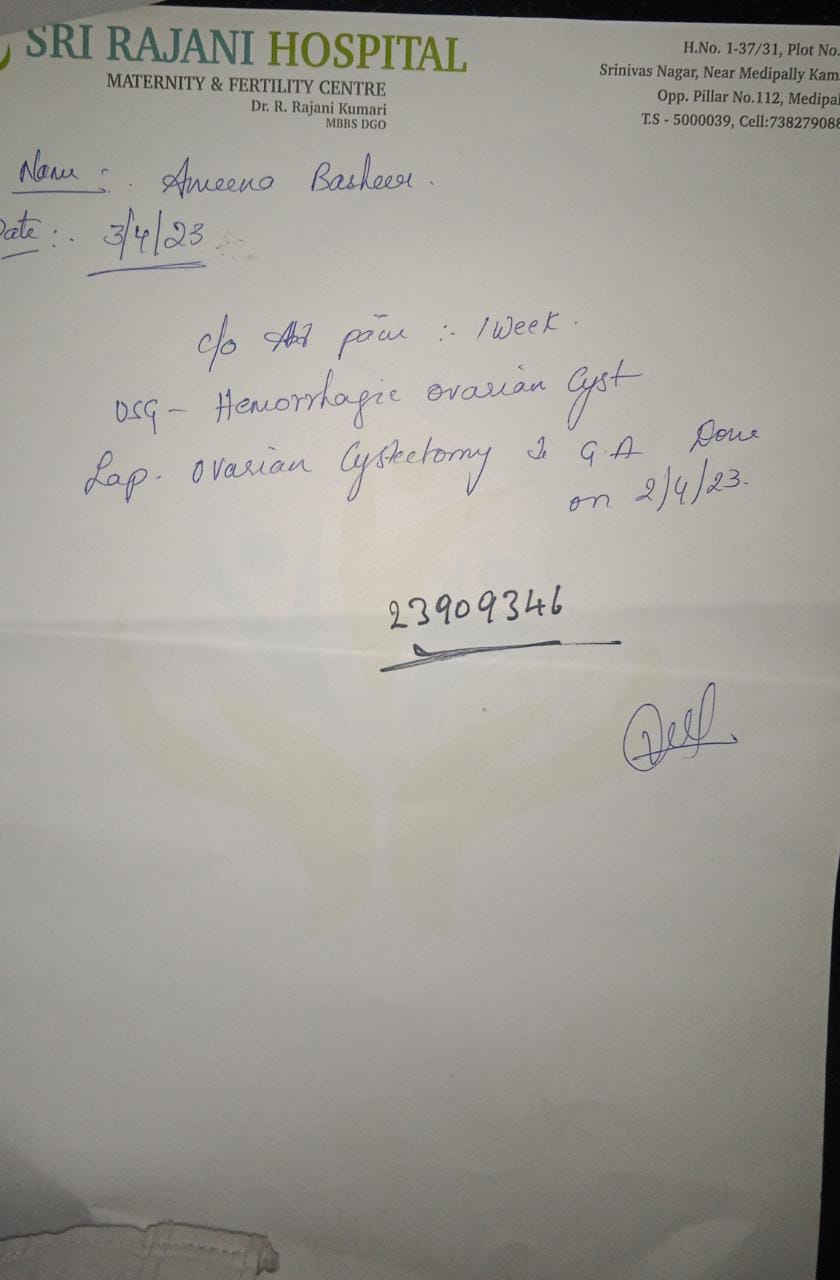 SRI RAJANI HOSPITAL
MATERNITY & FERTILITY CENTRE
Dr. R. Rajani Kumari
MBBS DGO
H.No. 1-37/31, Plot No.
Srinivas Nagar, Near Medipally Kam
Opp. Pillar No.112, Medipal
T.S - 5000039, Cell:738279088
Name :. Ameena Basheer.
Date :. 3/4/23
c/o Abd pain :- 1 Week.
USG - Hemorrhagic ovarian Cyst
Lap. Ovarian Cystectomy G.A Done
on 2/4/23.
23909346